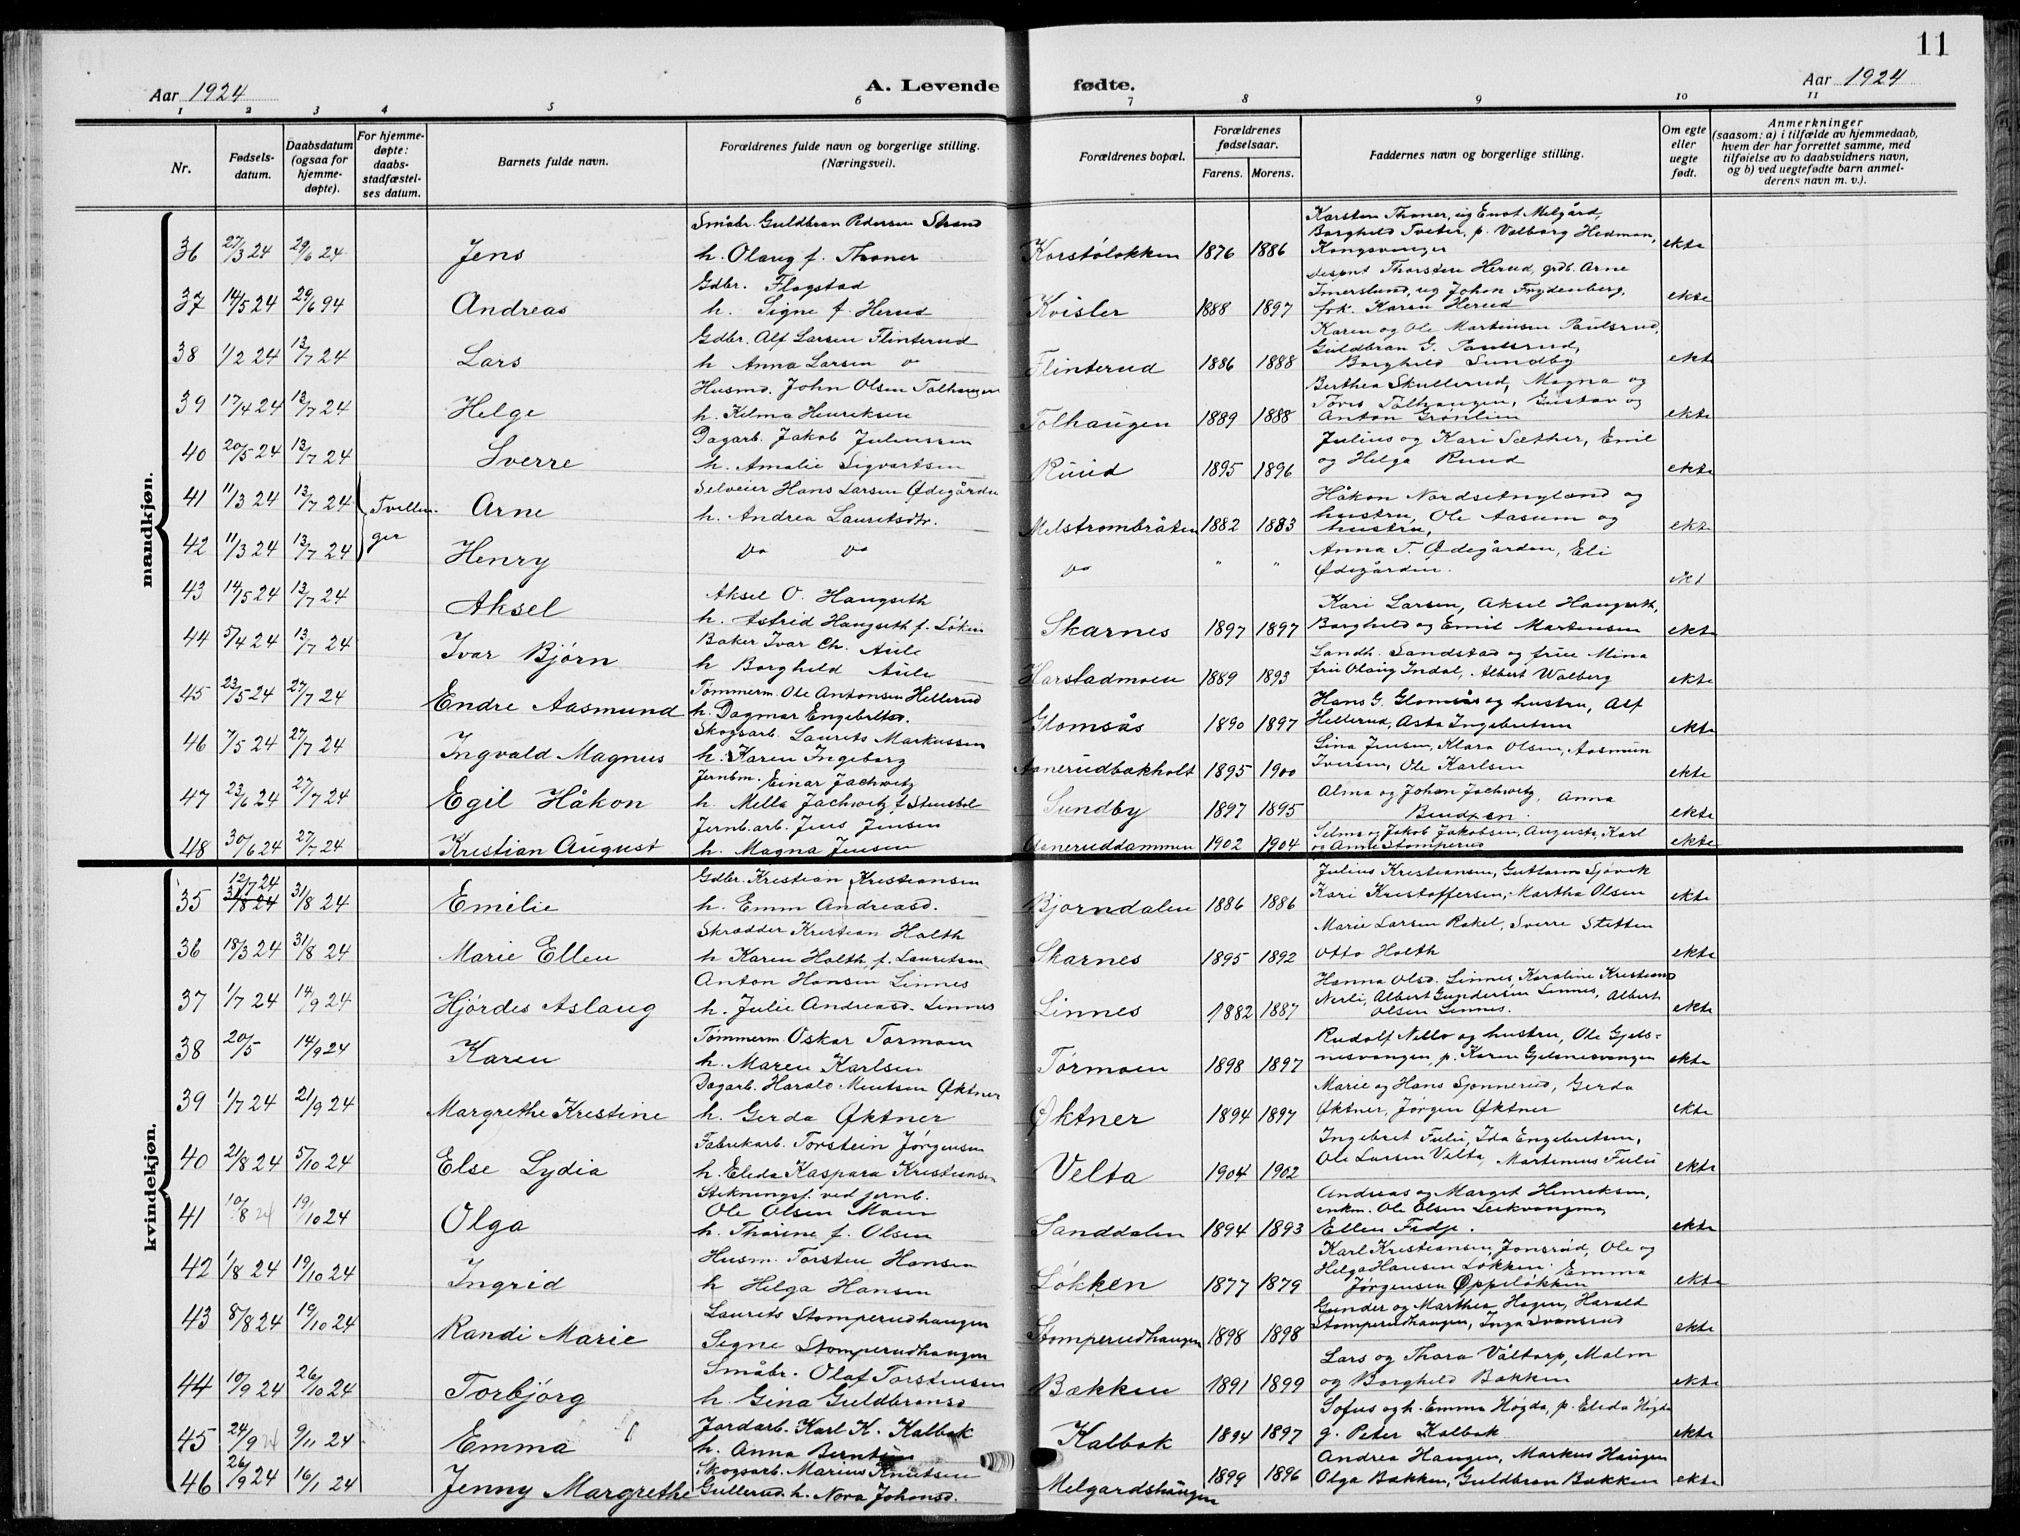 11
Aar 1924 A. Levende fødte. Aar 1924
1 2 3 4 5 6 7 8 9 10 11
Nr.
Fødsels-
datum.
Daabsdatum
(ogsaa for
hjemme-
døpte).
For hjemme-
døpte:
daabs-
stadfæstel-
ses datum.
Barnets fulde navn.
Forældrenes fulde navn og borgerlige stilling.
(Næringsvei).
Forældrenes bopæl.
Forældrenes
fødselsaar.
Farens. Morens.
Faddernes navn og borgerlige stilling.
Om egte
eller
uegte
født.
Anmerkninger
(saasom: a) i tilfælde av hjemmedaab,
hvem der har forrettet samme, med
tilføielse av to daabsvidners navn,
og b) ved uegtefødte barn anmel-
derens navn m. v.).
mandkjøn.
36 27/3 24 29/6 24 Jens
Småbr. Guldbran Pedersen Strand
h. Olaug f. Thoner
Korstoløkken 1876 1886
Karsten Thoner, ug Enot Melgård,
Borghild Tveter, p. Valborg Hedman,
Kongsvinger
ekte
37 14/5 24 29/6 94 Andreas
Gdbr. Flogstad
h. Signe f. Herud
Kvisler 1888 1897
Thorstein Herud, grdb. Arne
Imerslund, ug Johan Frydenberg,
frk. Karen Herud
ekte
38 1/2 24 13/7 24 Lars
Gdbr. Alf Larsen Flinterud
h Anna Larsen do
Flinterud 1886 1888
Karen og Ole Martinsen Paulsrud,
Guldbran G. Paulsrud,
Borghild Sundby
ekte
39 17/4 24 13/7 24 Helge
Husmd. John Olsen Tolhaugen
h. Hilma Henriksen
Tolhaugen 1889 1888
Berthea Skullerud, Magna og
Tolhaugen, Gustav og
Anton Grønlien
ekte
40 20/5 24 13/7 24 Sverre
Dagarb. Jakob Juliussen
h. Amalie Sigvartsen
Ruud 1895 1896
Julius og Kari Sæther, Emil
og Helga Ruud
ekte
41 11/3 24 13/7 24 Tvillin- Arne
Selveier Hans Larsen Ødegården
h. Andrea Lauritsdtr.
Melstrombråten 1882 1883
Håkon Nordsetngland og
hustru, Ole Aasum og
hustru,
ekte
42 11/3 24 13/7 24 ger Henry
Do Do
Do " "
Anna T. Ødegården, Eli
Ødegården.
ekt
43 14/5 24 13/7 24 Aksel
Aksel O. Haugseth
h. Astrid Haugseth f. Løken
Skarnes 1897 1897
Kari Larsen, Aksel Haugseth,
Borghild og Emil Martinsen
ekte
44 5/4 24 13/7 24 Ivar Bjørn
Baker Ivar Ch. Aule
h Borghild Aule
Harstadmoen 1889 1893
Landh. Sandstad og frue Mina
fru Olaug Indal, Albert Walberg
ekte
45 23/5 24 27/7 24 Endre Aasmund
Tømmerm. Ole Antonsen Hellerud
h. Dagmar Engebrltsd.
Glomsås 1890 1897
Hans G. Glomsås og hustru, Alf
Hellerud, Asta Ingebretsen
ekte
46 7/5 24 27/7 24 Ingvald Magnus
Skogsarb. Laurits Markussen
h. Karen Ingeborg
Aanerudbakholt 1895 1900
Lina Jensen, Klara Olsen, Aasmun
Iversen, Ole Karlsen
ekte
47 23/6 24 27/7 24 Egil Håkon
Jernbm. Einar Jachwitz
h. Milla Jachwitz f. Stensbøl
Sundby 1897 1895
Alma og Johan Jachwitz, Anna
Bendxen.
ekte
48 30/6 24 27/7 24 Kristian August
Jernb.arb. Jens Jensen
h. Magna Jensen
Aaneruddammen 1902 1904
Selma og Jakob Jakobsen, August, Karl
og Anne Stomperud
ekte
kvindekjøn.
35 12/7 24 31/8 24 31/8 24 Emilie
Gdbr. Kristian Kristiansen
h. Emm Andreasd.
Bjørndalen 1886 1886
Julius Kristiansen, Guttorm Sjøvik
Kari Kristoffersen, Martha Olsen
ekte
36 18/3 24 31/8 24 Marie Ellen
Skrædder Kristian Holth
h Karen Holth, f. Lauritsen
Skarnes 1895 1892
Marie Larsen Rakel, Sverre Stetten
Otto Holth
ekte
37 1/7 24 14/9 24 Hjørdes Aslaug
Anton Hansen Linnes
h. Julie Andreasd. Linnes
Linnes 1882 1887
Hanna Olsd. Linnes, Karoline Kristiansd
Nerli, Albert Gundersen Linnes, Albert
Olsen Linnes.
ekte
38 20/5 14/9 24 Karen
Tømmerm Oskar Tormoen
h. Maren Karlsen
Tørmoen 1898 1897
Rudolf Nello og hustru, Ole Gjels-
nesvangen, p. Karen Gjelsnesvangen
ekte
39 1/7 24 21/9 24 Margrethe Kristine
Dagarb. Harald Knutsen Øktner
h. Gerda Øktner
Øktner 1894 1897
Marie og Hans Sjonnerud, Gerda
Øktner, Jørgen Øktner
ekte
40 21/8 24 5/10 24 Else Lydia
Fabrikarb. Torstein Jørgensen
h. Elida Kaspara Kristiansen
Velta 1904 1902
Ingebret Fuli, Ida Engebretsen,
Ole Larsen Velta, Martinius Fuli
ekte
41 10/8 24 19/10 24 Olga
Stikningsf. ved jernb.
Ole Olsen Moen
h. Thorine f. Olsen
Sanddalen 1894 1893
Andreas og Marget Henriksen,
enkm. Ole Olsen Leikvangmo,
Ellen Fidje.
ekte
42 1/8 24 19/10 24 Ingrid
Husm. Torsten Hansen
h Helga Hansen
Løkken 1877 1879
Karl Kristiansen Jonsrud, Ole og
Helga Hansen Løkken. Emma
Jørgensen Oppeløkken
ekte
43 8/8 24 19/10 24 Randi Marie
Laurits Stomperudhaugen
Signe Stomperudhaugen
Stomperudhaugen 1898 1898
Gunder og Marthea Hagen, Harald
Stomperudhaugen, Inga Svensrud
ekte
44 10/9 24 26/10 24 Torbjørg
Småbr. Olaf Torstensen
h. Gina Guldbransd
Bækken 1891 1899
Lars og Thora Våltorp, Malm
og Borghild Bækken
ekte
45 24/9 24 9/11 24 Emma
Jordarb. Karl K. Kalbak
h. Anna Berntsen
Kalbak 1894 1897
Sofus og h. Emma Høgda, p. Elida Høgda
g. Peter Kalbak
ekte
46 26/9 24 16/1 24 Jenny Margrethe
Skogsarb. Marius Knutsen
Gullerud h. Nora Johansd.
Melgardshaugen 1899 1896
Andrea Haugen, Markus Haugen
Olga Bakken, Guldbran Bakken
ekte